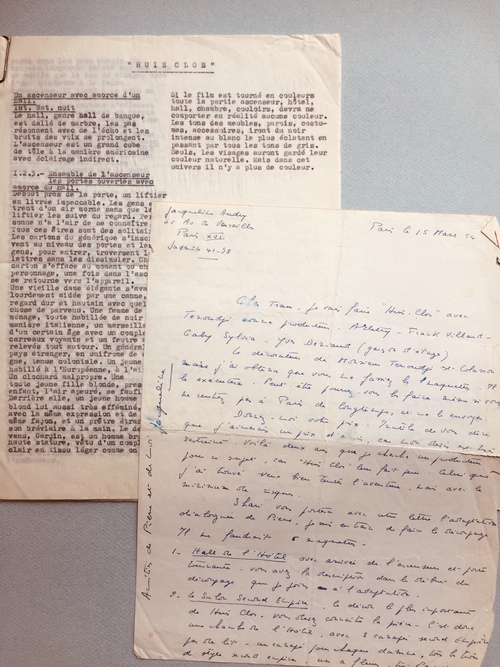 "HUIS CLOS"
Un ascenseur avec amorce d'un
hall.
Int. Nat. nuit
Le hall, genre hall de banque,
est dallé de marbre, les pas
résonnent avec de l'écho et les
bruits des voix se prolongent.
L'ascenseur est un grand cube
de tôle à la manière américaine
avec éclairage indirect.
1.2.3.- Ensemble de l'ascenseur
les portes ouvertes avec
amorce du hall.
Debout près de la porte, un liftier
en livrée impeccable. Les gens
trent d'un air morne sans que le
liftier les suive du regard.
sonne n'a l'air de se connaître
Tous ces êtres sont des solitai
Les cartons du générique s'insc
vent au niveau des portes et le
gens, pour entrer, traversent l
lettres sans les dissimuler.
carton s'efface au moment où
personnage, une fois dans l'asc
se retourne vers l'appareil.
Une vieille dans élégante s'ava
lourdement aidée par une canne,
regard dur et hautain avec quel
chose de parvenu. Une femme de
nage, toute habillée de noir
manière italienne, un marseill
d'un certain âge avec un compl
carreaux voyants et un feutre
relevés tout autour. Un général
pays étranger, en uniforme de
tenue coloniale. Un jeune
habillé à l'Européenne,
Un clochard malpropre. Une
toute jeune fille blonde, pres
enfant, l'air apeuré, se faufi
derrière elle, un jeune homme
blond lui aussi très efféminé,
avec la même expression et de
même façon, et un prêtre
son bréviaire à la main. Le
venu, Garcin, est un homme br
haute stature, vêtu d'un compl
clair en tissu léger comme on
Si le film est tourné en couleurs
toute la partie ascenseur, hôtel,
hall, chambre, couloirs, devra ne
comporter en réalité aucune couleur.
Les tons des meubles, parois, costu-
mes, accessoires, iront du noir
intense au blanc le plus éclatant en
passant par tous les tons de gris.
Seuls, les visages auront gardé leur
couleur naturelle. Mais dans cet
univers il n'y a plus de couleur.
Jacqueline Audry
Av. de Versailles
Paris XVI
41-98
Paris le 15 Mars 54
Cher Trau. Je vais faire "Huis Clos" avec
comme producteur. Arletty - Frank Villard -
Gaby Sylvia - Yves Deniaud (garçon d'étage)
le décorateur de Monsieur est Colasson
mais j'ai obtenu que vous me fassiez les maquettes. Il
les exécutera. Peut être pourrez vous les faire même si vous
ne rentrez pas à Paris de longtemps, et me les envoyer
Donnez moi votre prix. Inutile de vous dire
que j'aimerais un prix d'ami, car mon devis est très
restreint. Voilà deux ans que je cherche un producteur
pour ce sujet, car "Huis Clos" leur fait peur. Celui que
j'ai trouvé veut bien tenter l'aventure, mais avec le
minimum de risques.
dialoguée de Pierre. Je suis en train de faire le découpage
Il me faudrait 5 maquettes -
1. Hall de l'Hôtel avec arrivée de l'ascenseur et porte
tournante. Vous avez la description dans le début du
découpage que je joins à l'adaptation.
2. le Salon Second Empire, le décor le plus important
de Huis Clos. Vous devez connaître la pièce. C'est donc
une chambre de l'Hôtel, avec 3 canapés second Empire
un canapé pour chaque damné, tous les trois
Jacqueline
Amitiés de Pierre et de moi